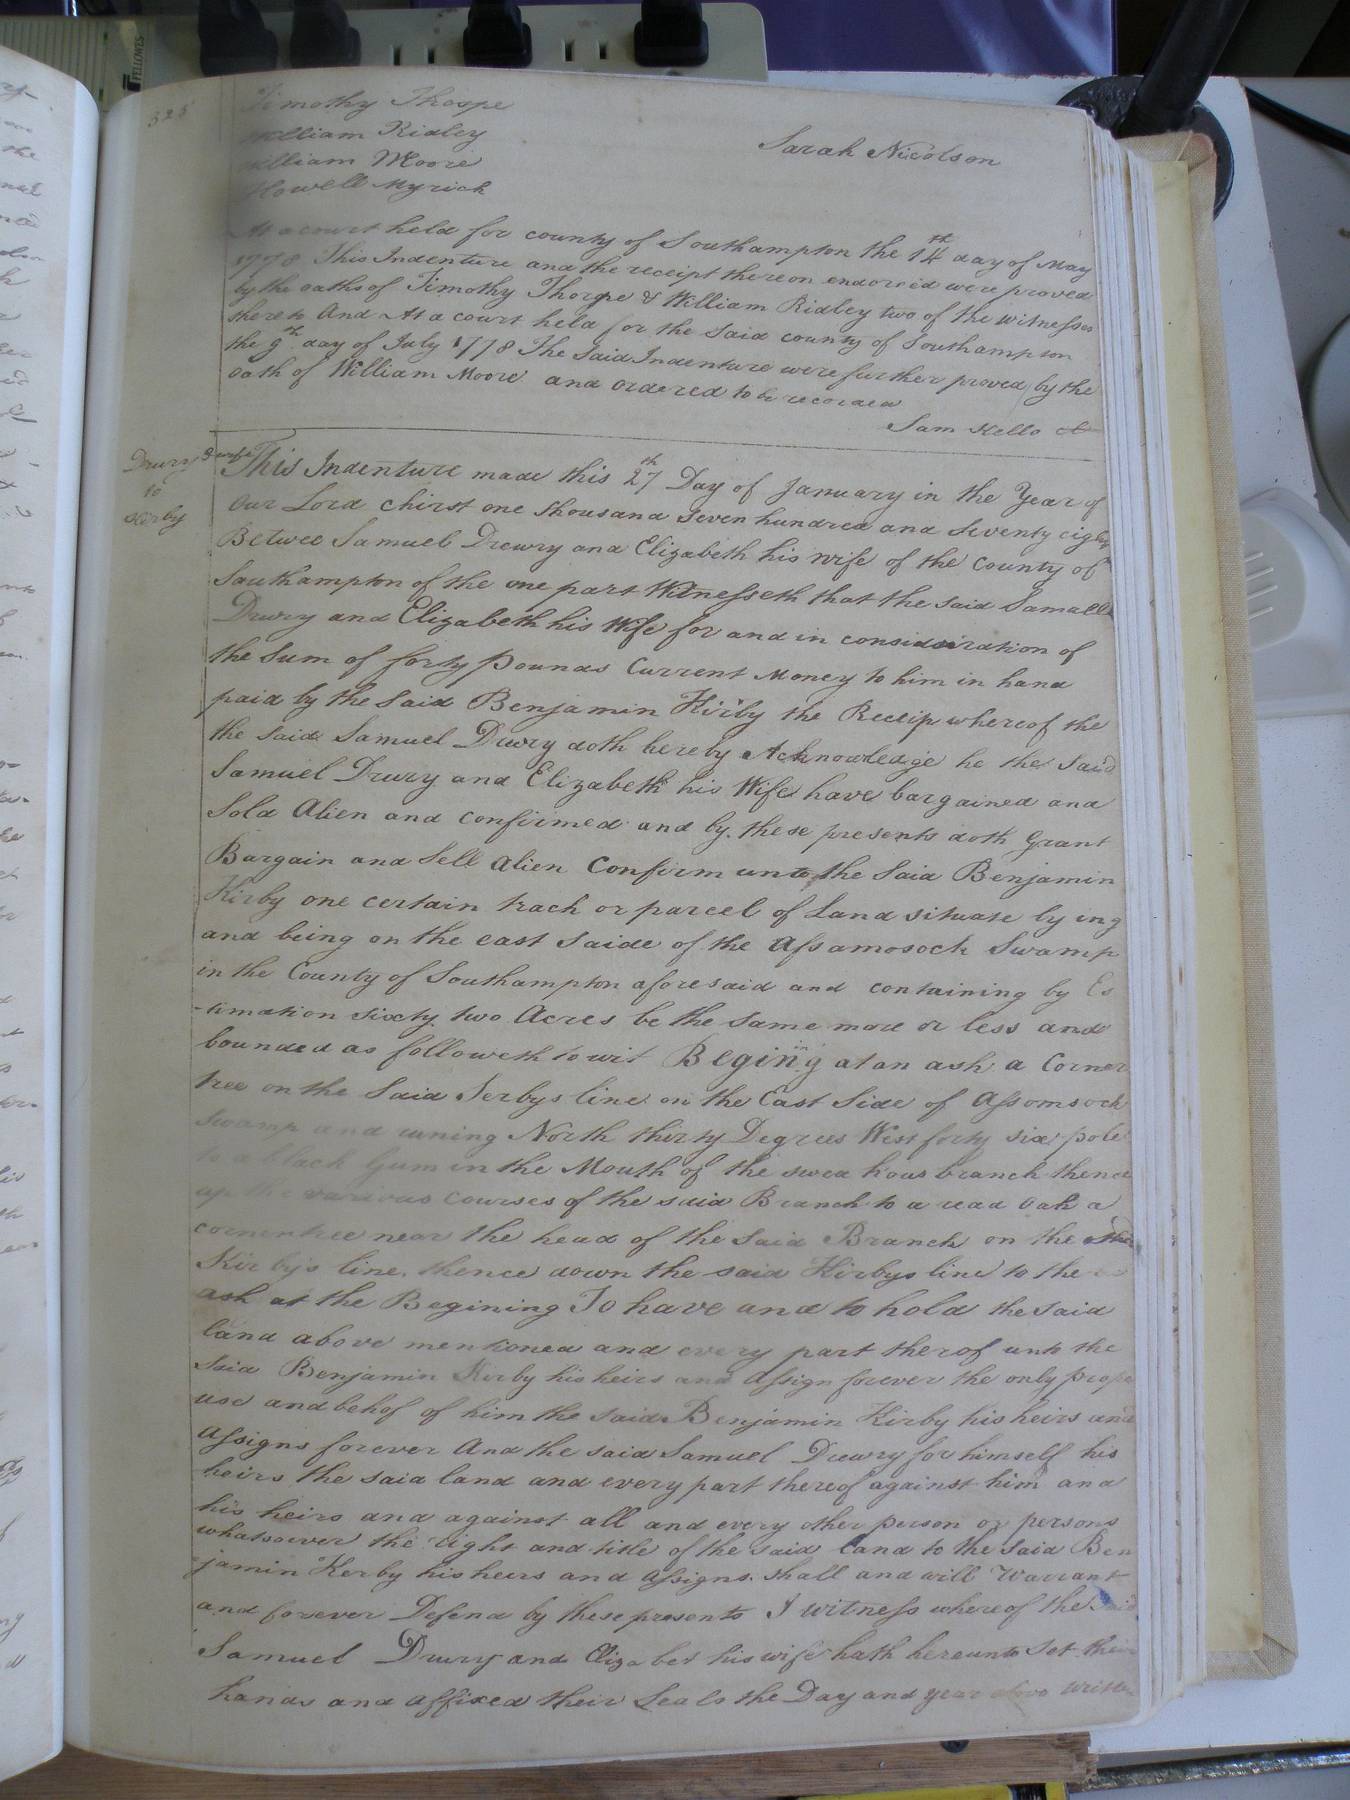 FELLOWES
328
Timothy Thorpe
William Ridley
Sarah Nicolson
William Moore
Howell Myrick
At a court held for county of Southampton the 14th day of May
1778 This Indenture and the receipt thereon endorsed were proved
by the oaths of Timothy Thorpe & William Ridley two of the witnesses
thereto And At a court held for the said county of Southampton
the 9th day of July 1778 The said Indenture were further proved by the
oath of William Moore and ordered to be recorded
Sam Kello
Drury & wife
to
Kirby
This Indenture made this 27th Day of January in the Year of
Our Lord Chirst one thousand Seven hundred and Seventy eight
Betwee Samuel Drewry and Elizabeth his wife of the County of
Southampton of the one part Witnesseth that the said Samuell
Drury and Elizabeth his Wife for and in consideration of
the Sum of forty pounds Current Money to him in hand
paid by the said Benjamin Kirby the Receip whereof the
the said Samuel Drury doth hereby Acknowledge he the said
Samuel Drury and Elizabeth his Wife have bargained and
Sold Alien and confirmed and by these presents doth Grant
Bargain and Sell alien Confirm unto the Said Benjamin
Kirby one certain track or parcel of Land situate lying
and being on the east Saide of the Assamosock Swamp
in the County of Southampton aforesaid and containing by Es
-timation sixty two Acres be the same more or less and
bounded as followeth to wit Begining at an ash a Corner
tree on the Said Serbys line on the East Side of Assomsock
Swamp and runing North thirty Degrees West forty six pole
to a black Gum in the Mouth of the branch thence
up the various courses of the said Branch to a read oak a
corner tree near the head of the Said Branch on the
Kirby's line, thence down the said Kirbys line to the
ash at the Begining To have and to hold the said
land above mentioned and every part therof unto the
Said Benjamin Kirby his heirs and assign forever the only prope
use and behof of him the said Benjamin Kirby his heirs and
assigns forever And the said Samuel Drewry for himself his
heirs the said land and every part thereof against him and
his heirs and against all and every other person or persons
whatsoever the right and title of the said land to the said Ben
jamin Kerby his heirs and assigns shall and will Warrant
and forever Defend by these presents I witness whereof the said
Samuel Drury and Elizabet his wife hath hereunto set their
hands and affixed their Seals the Day and year above written